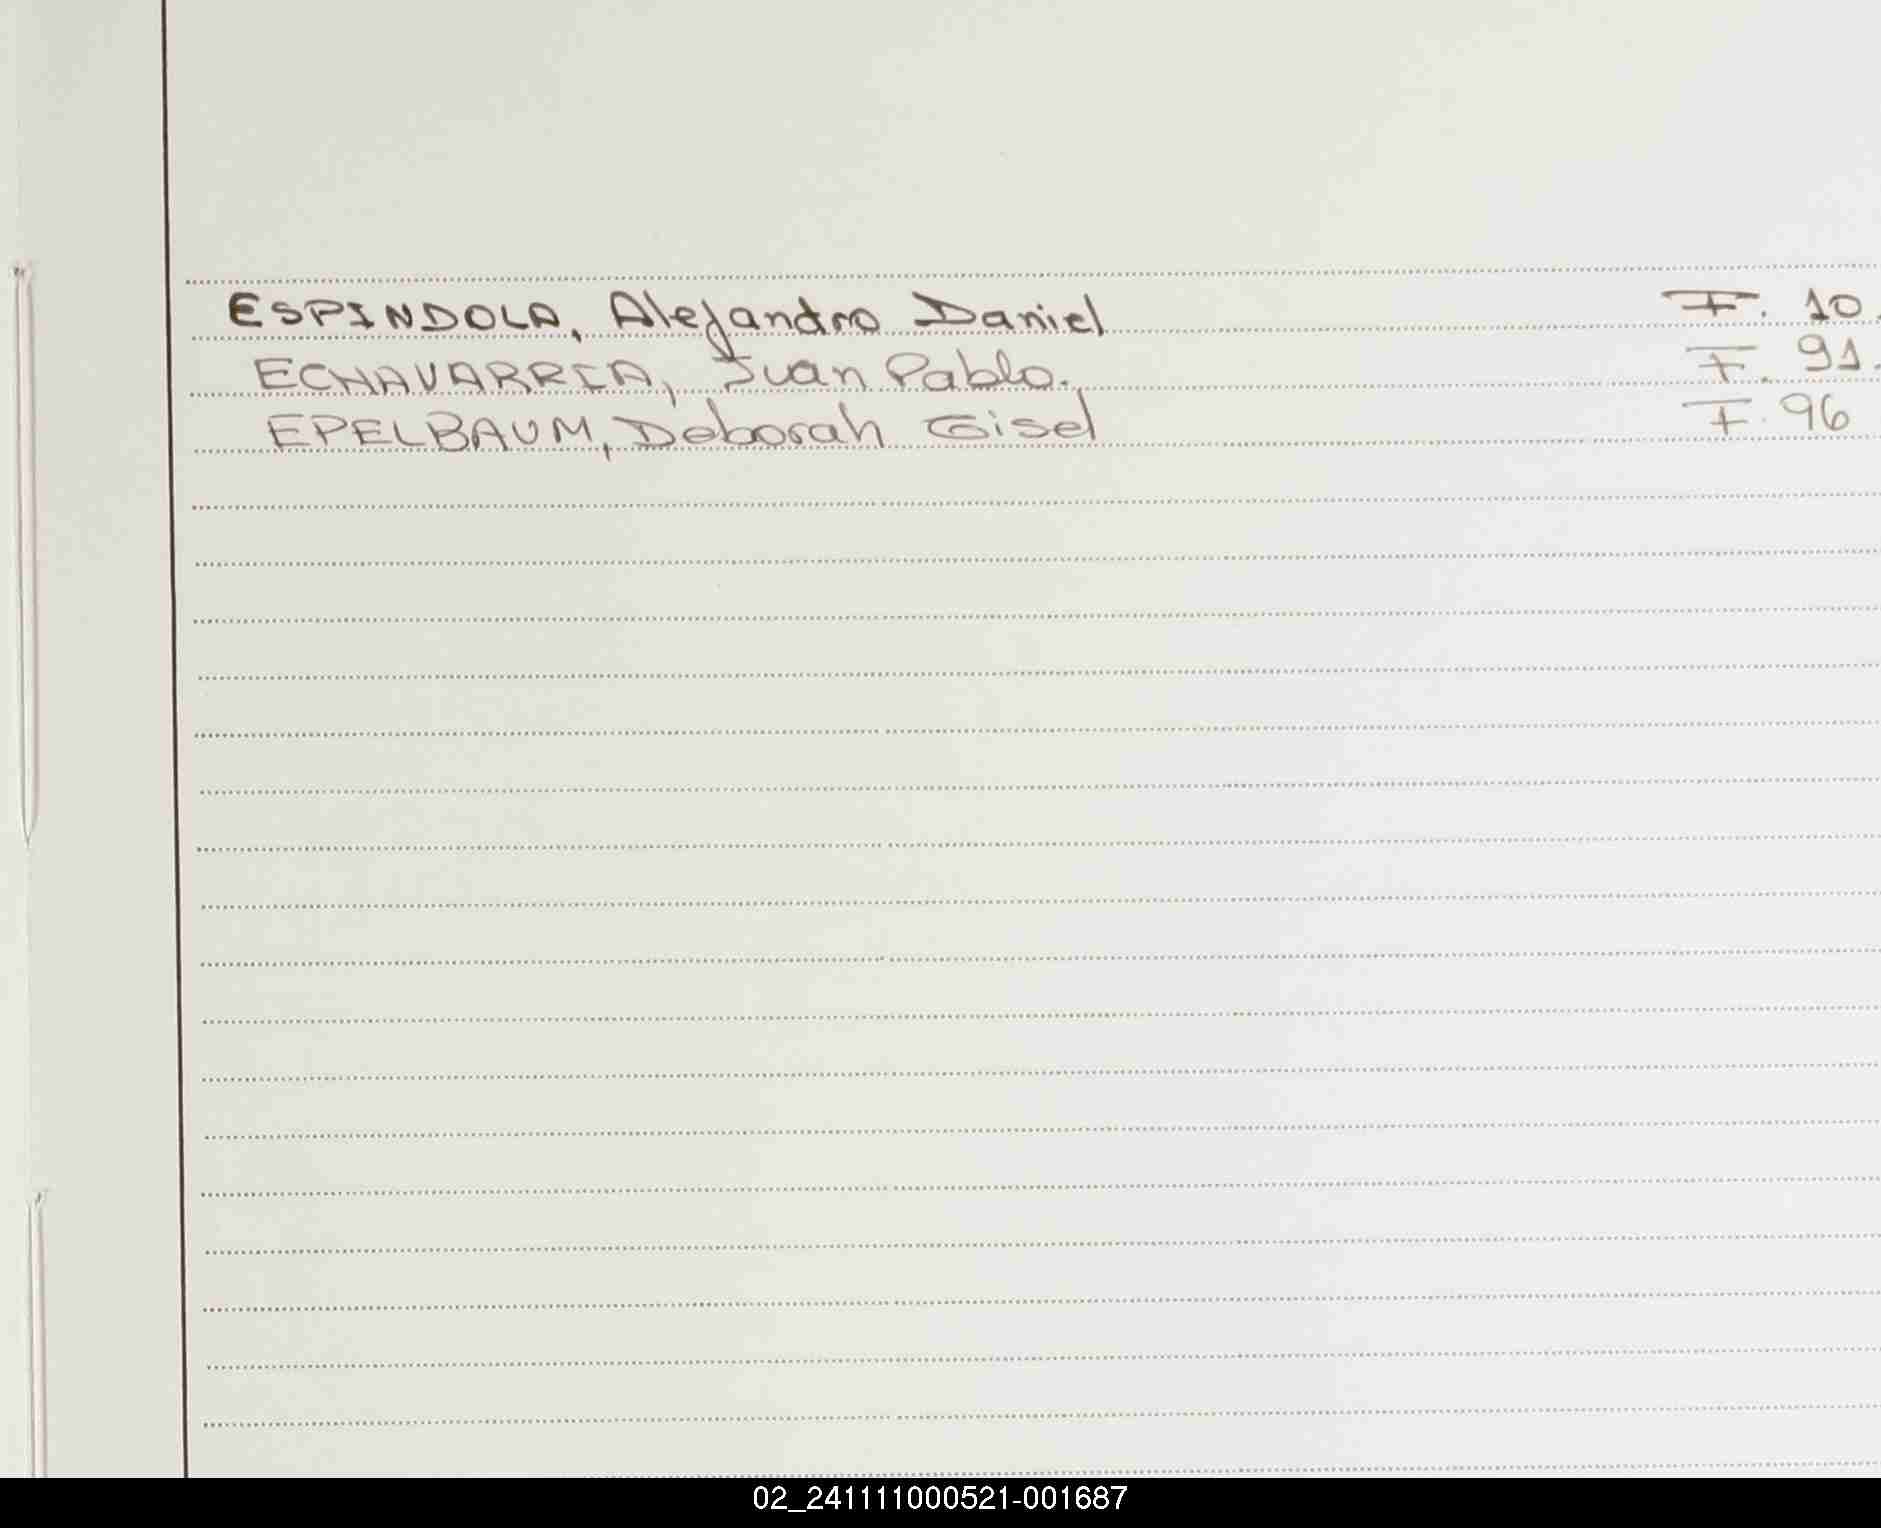 ESPINDOLA, Alejandro Daniel F. 10.
ECHAVARRIA, Juan Pablo. F. 91.
EPELBAUM, Deborah Gisel F. 96
02_241111000521-001687